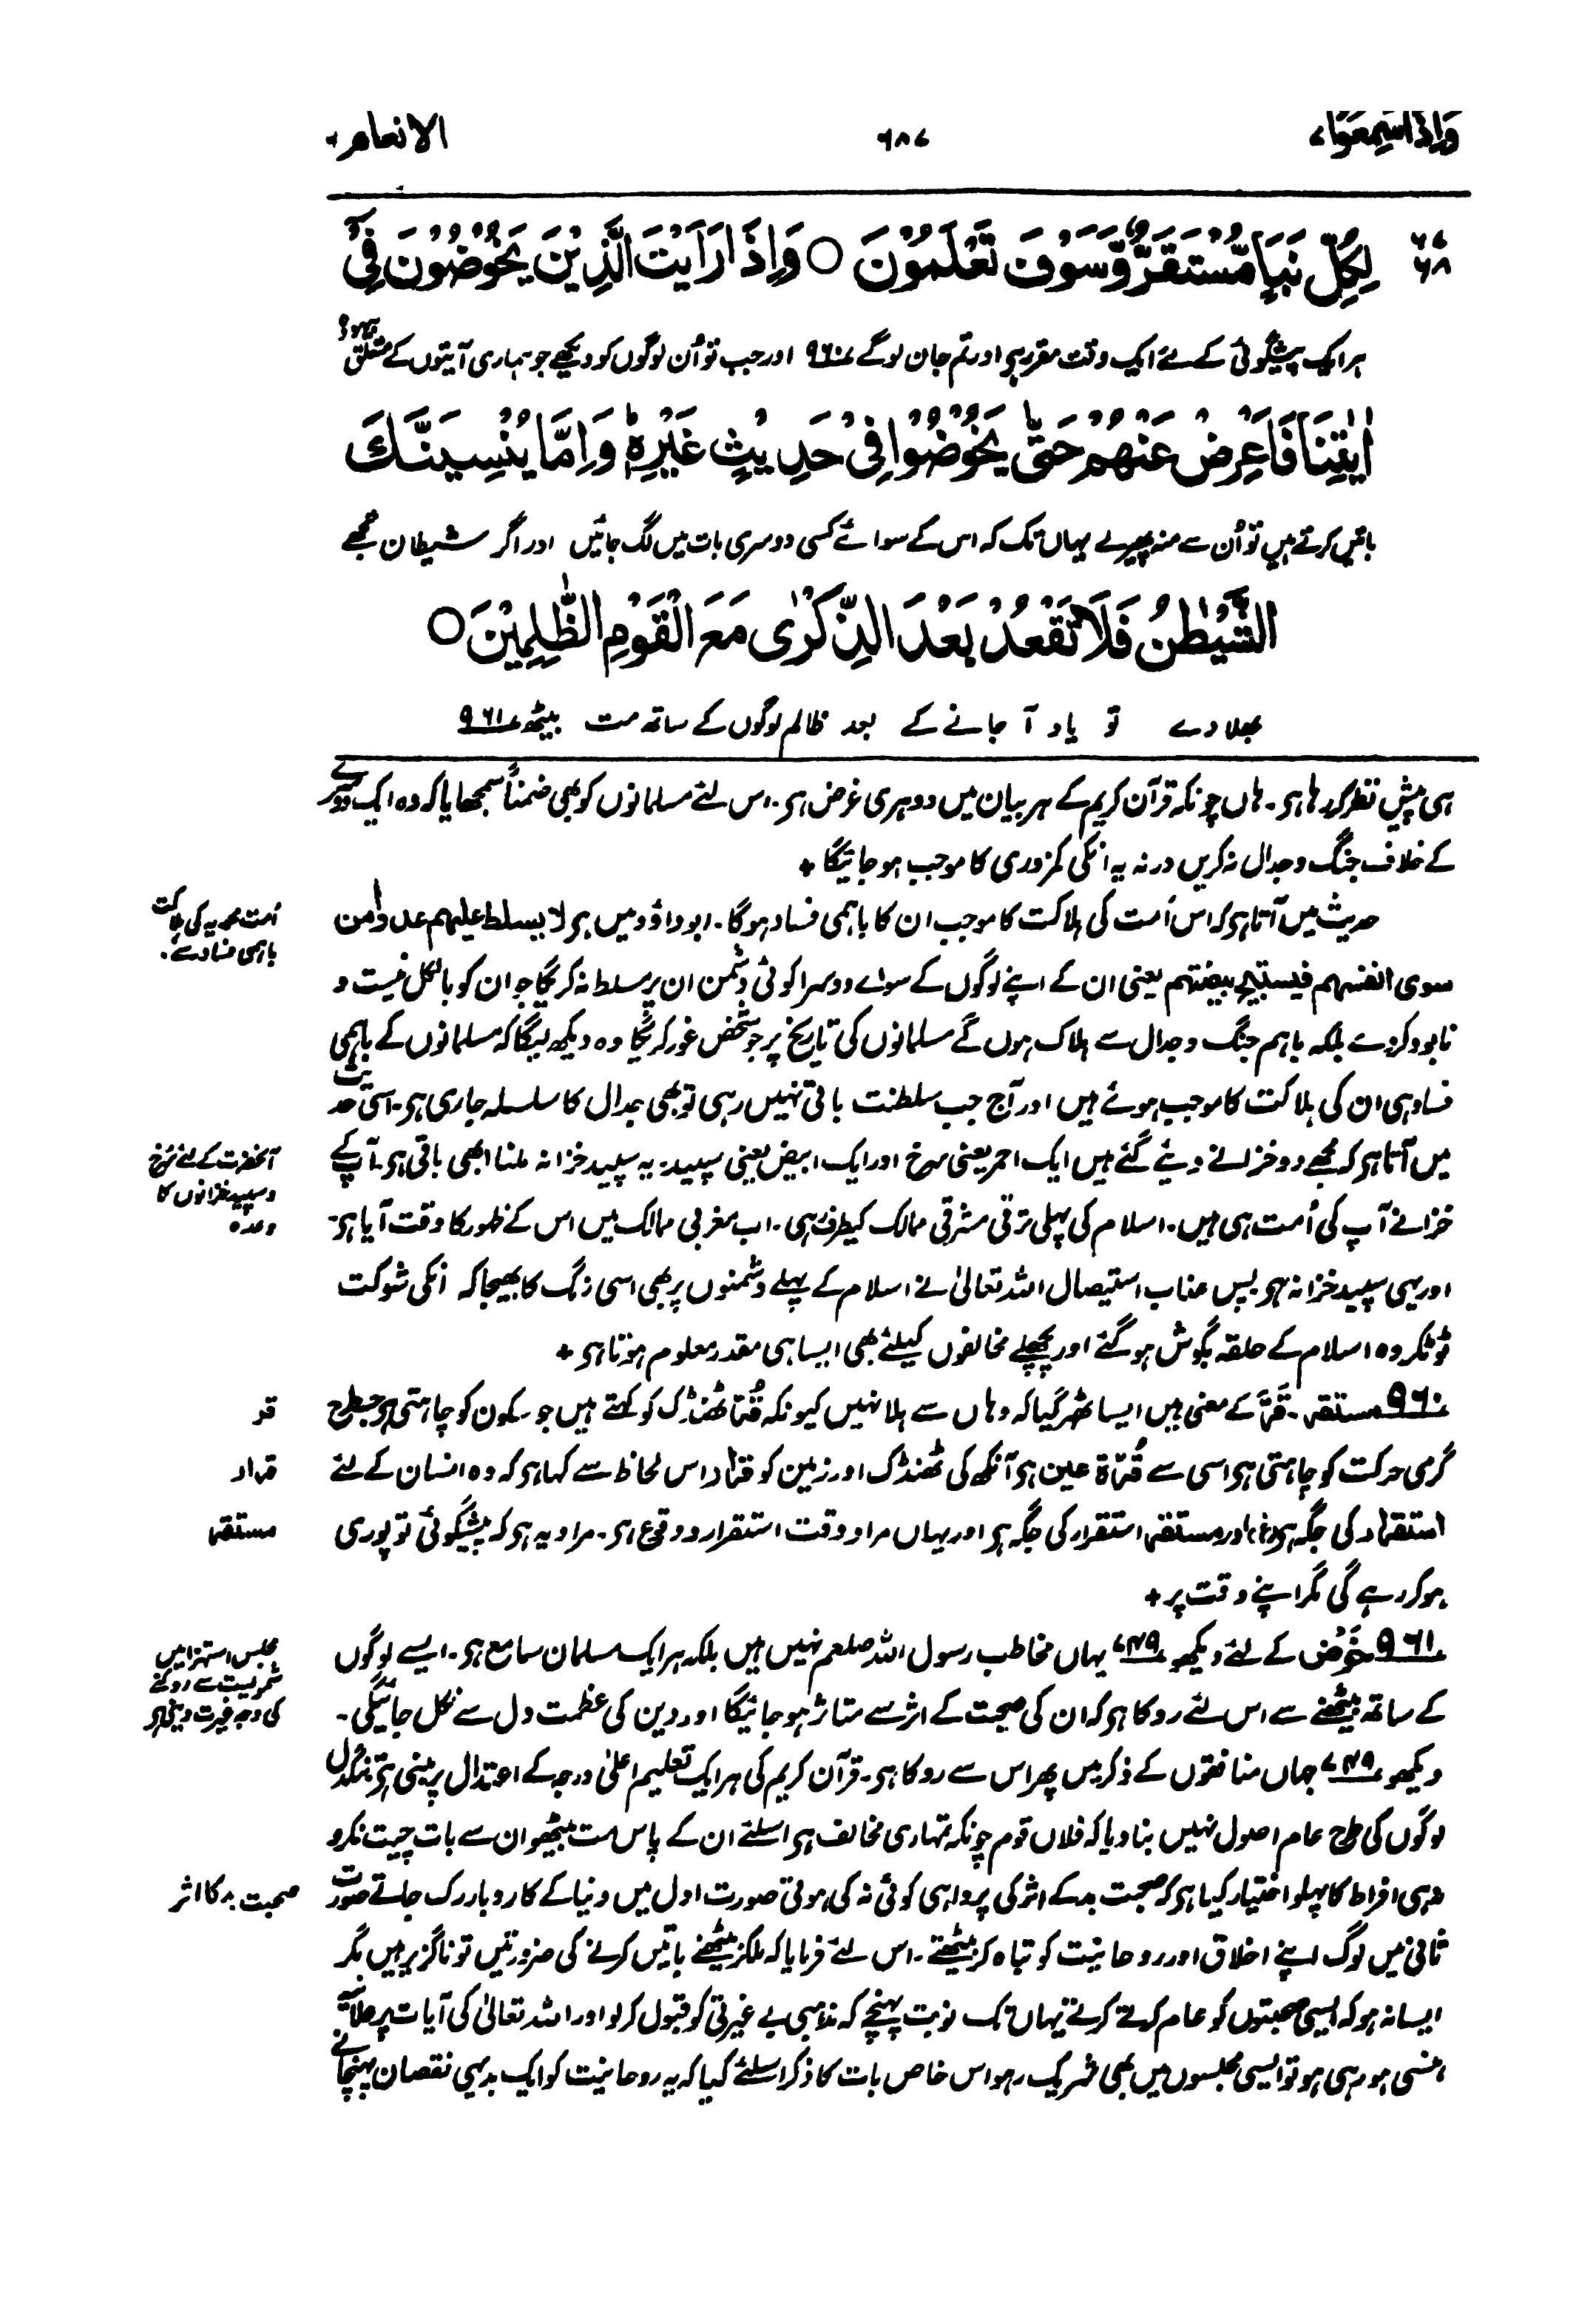 وَاِذَا سَمِعُوْا ۷
۶۸۷
الانعام ۶
۶۷
۶۸
لِكُلِّ نَبَاٍ مُّسْتَقَرٌّ وَّسَوْفَ تَعْلَمُوْنَ ○ وَاِذَا رَاَيْتَ الَّذِيْنَ يَخُوْضُوْنَ فِيْٓ
ہر ایک پیشگوئی کے لئے ایک وقت مقرر ہی اور تم جان لوگے ۹۶۰ اور جب تو اُن لوگوں کو دیکھے جو ہماری آیتوں کے متعلق بیہودہ
اٰيٰتِنَا فَاَعْرِضْ عَنْهُمْ حَتّٰى يَخُوْضُوْا فِيْ حَدِيْثٍ غَيْرِهٖ ؕ وَاِمَّا يُنْسِيَنَّكَ
باتیں کرتے ہیں تو اُن سے منہ پھیرلے یہاں تک کہ اس کے سوائے کسی دوسری بات میں لگ جائیں اور اگر شیطان تجھے
الشَّيْطٰنُ فَلَا تَقْعُدْ بَعْدَ الذِّكْرٰى مَعَ الْقَوْمِ الظّٰلِمِيْنَ ○
بھلا دے تو یاد آ جانے کے بعد ظالم لوگوں کے ساتھ مت بیٹھ ۹۶۱
ہی پیش نظر کر رہا ہی۔ ہاں چونکہ قرآن کریم کے ہر بیان میں دوہری غرض ہی۔ اس لئے مسلمانوں کو بھی ضمناً سمجھایا کہ وہ ایک دوسرے
کے خلاف جنگ وجدال نہ کریں ورنہ یہ انکی کمزوری کا موجب ہو جائیگا +
حدیث میں آتا ہی کہ اس اُمت کی ہلاکت کا موجب ان کا باہمی فساد ہوگا۔ ابوداؤد میں ہی لا یسلط علیہم عدوا من
اُمت محمدیہ کی ہلاکت
باہمی فساد سے۔
سوی انفسہم فیستبیح بیضتہم یعنی ان کے اپنے لوگوں کے سوائے دوسرا کوئی دشمن ان پر مسلط نہ کریگا جو ان کو بالکل نیست و
نابود کردے بلکہ باہم جنگ وجدال سے ہلاک ہوں گے مسلمانوں کی تاریخ پر جو شخص غور کریگا وہ دیکھ لیگا کہ مسلمانوں کے باہمی
فساد ہی ان کی ہلاکت کا موجب ہوئے ہیں اور آج جب سلطنت باقی نہیں رہی تو بھی جدال کا سلسلہ جاری ہی۔ اسی حدیث
میں آتا ہی کہ مجھے دو خزانے دیئے گئے ہیں ایک احمر یعنی سرخ اور ایک ابیض یعنی سپید۔ یہ سپید خزانہ ملنا ابھی باقی ہی۔ آپ کے
آنحضرت کے لئے سرخ
و سپید خزانوں کا
وعدہ
خزانے آپ کی اُمت ہی ہیں۔ اسلام کی پہلی ترقی مشرقی ممالک کیطرف رہی۔ اب مغربی ممالک میں اس کے ظہور کا وقت آیا ہی۔
اور یہی سپید خزانہ ہی۔ پس عذاب استیصال اللہ تعالیٰ نے اسلام کے پہلے دشمنوں پر بھی اسی رنگ کا بھیجا کہ انکی شوکت
ٹوٹکر وہ اسلام کے حلقہ بگوش ہو گئے اور پچھلے مخالفوں کیلئے بھی ایسا ہی مقدر معلوم ہوتا ہی +
۹۶۰ مستقر۔ قَرَّ کے معنی ہیں ایسا ٹھہر گیا کہ وہاں سے ہلا نہیں کیونکہ قُر ٹھنڈک کو کہتے ہیں جو سکون کو چاہتی ہی جسطرح
قر
گرمی حرکت کو چاہتی ہی اسی سے قُرّۃ عین ہی آنکھ کی ٹھنڈک اور زمین کو قرار اس لحاظ سے کہا ہی کہ وہ انسان کے لئے
قرار
استقرار کی جگہ ہی (غ) اور مستقر استقرار کی جگہ ہی اور یہاں مراد وقت استقرار و وقوع ہی۔ مراد یہ ہی کہ پیشگوئی تو پوری
مستقر
ہو کر رہے گی مگر اپنے وقت پر +
۹۶۱ خَوْض کے لئے دیکھو ۷۴۹ یہاں مخاطب رسول اللہ صلعم نہیں ہیں بلکہ ہر ایک مسلمان سامع ہی۔ ایسے لوگوں
مجلس استہزا میں
شمولیت سے روکنے
کی وجہ غیرت دینی ہی
کے ساتھ بیٹھنے سے اس لئے روکا ہی کہ ان کی صحبت کے اثر سے متاثر ہو جائیگا اور دین کی عظمت دل سے نکل جائیگی۔
دیکھو ۷۴۹ جہاں منافقوں کے ذکر میں پھر اس سے روکا ہی۔ قرآن کریم کی ہر ایک تعلیم اعلیٰ درجہ کے اعتدال پر مبنی ہی تنگدل
لوگوں کی طرح عام اصول نہیں بنا دیا کہ فلاں قوم چونکہ تمہاری مخالف ہی اسلئے ان کے پاس مت بیٹھو ان سے بات چیت نکرو
نہ ہی افراط کا پہلو اختیار کیا ہی کہ صحبت بد کے اثر کی پروا ہی کوئی نہ کی ہوتی صورت اول میں دنیا کے کاروبار رک جاتے صورت
صحبت بد کا اثر
ثانی میں لوگ اپنے اخلاق اور روحانیت کو تباہ کر بیٹھتے۔ اس لئے فرمایا کہ ملکر بیٹھنے باتیں کرنے کی ضرورتیں تو ناگزیر ہیں مگر
ایسا نہ ہو کہ ایسی صحبتوں کو عام کرتے کرتے یہاں تک نوبت پہنچے کہ مذہبی بے غیرتی کو قبول کر لو اور اللہ تعالیٰ کی آیات پر علانیہ
ہنسی ہو رہی ہو تو ایسی مجلسوں میں بھی شریک رہو اس خاص بات کا ذکر اسلئے کیا کہ یہ روحانیت کو ایک بدیہی نقصان پہنچانے